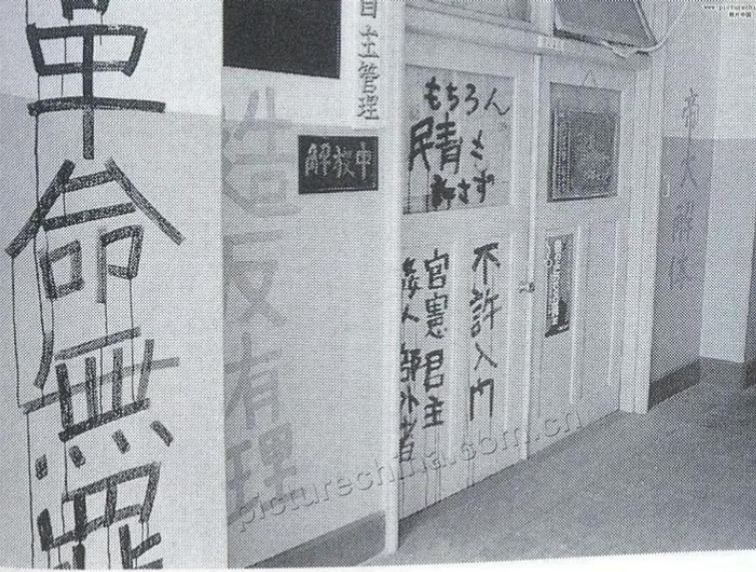 革命無罪
造反有理
自主管理
解放中
もちろん
民青も
許さず
不許入門
官憲君主
人部外者
帝大解体
picturechina.com.cn